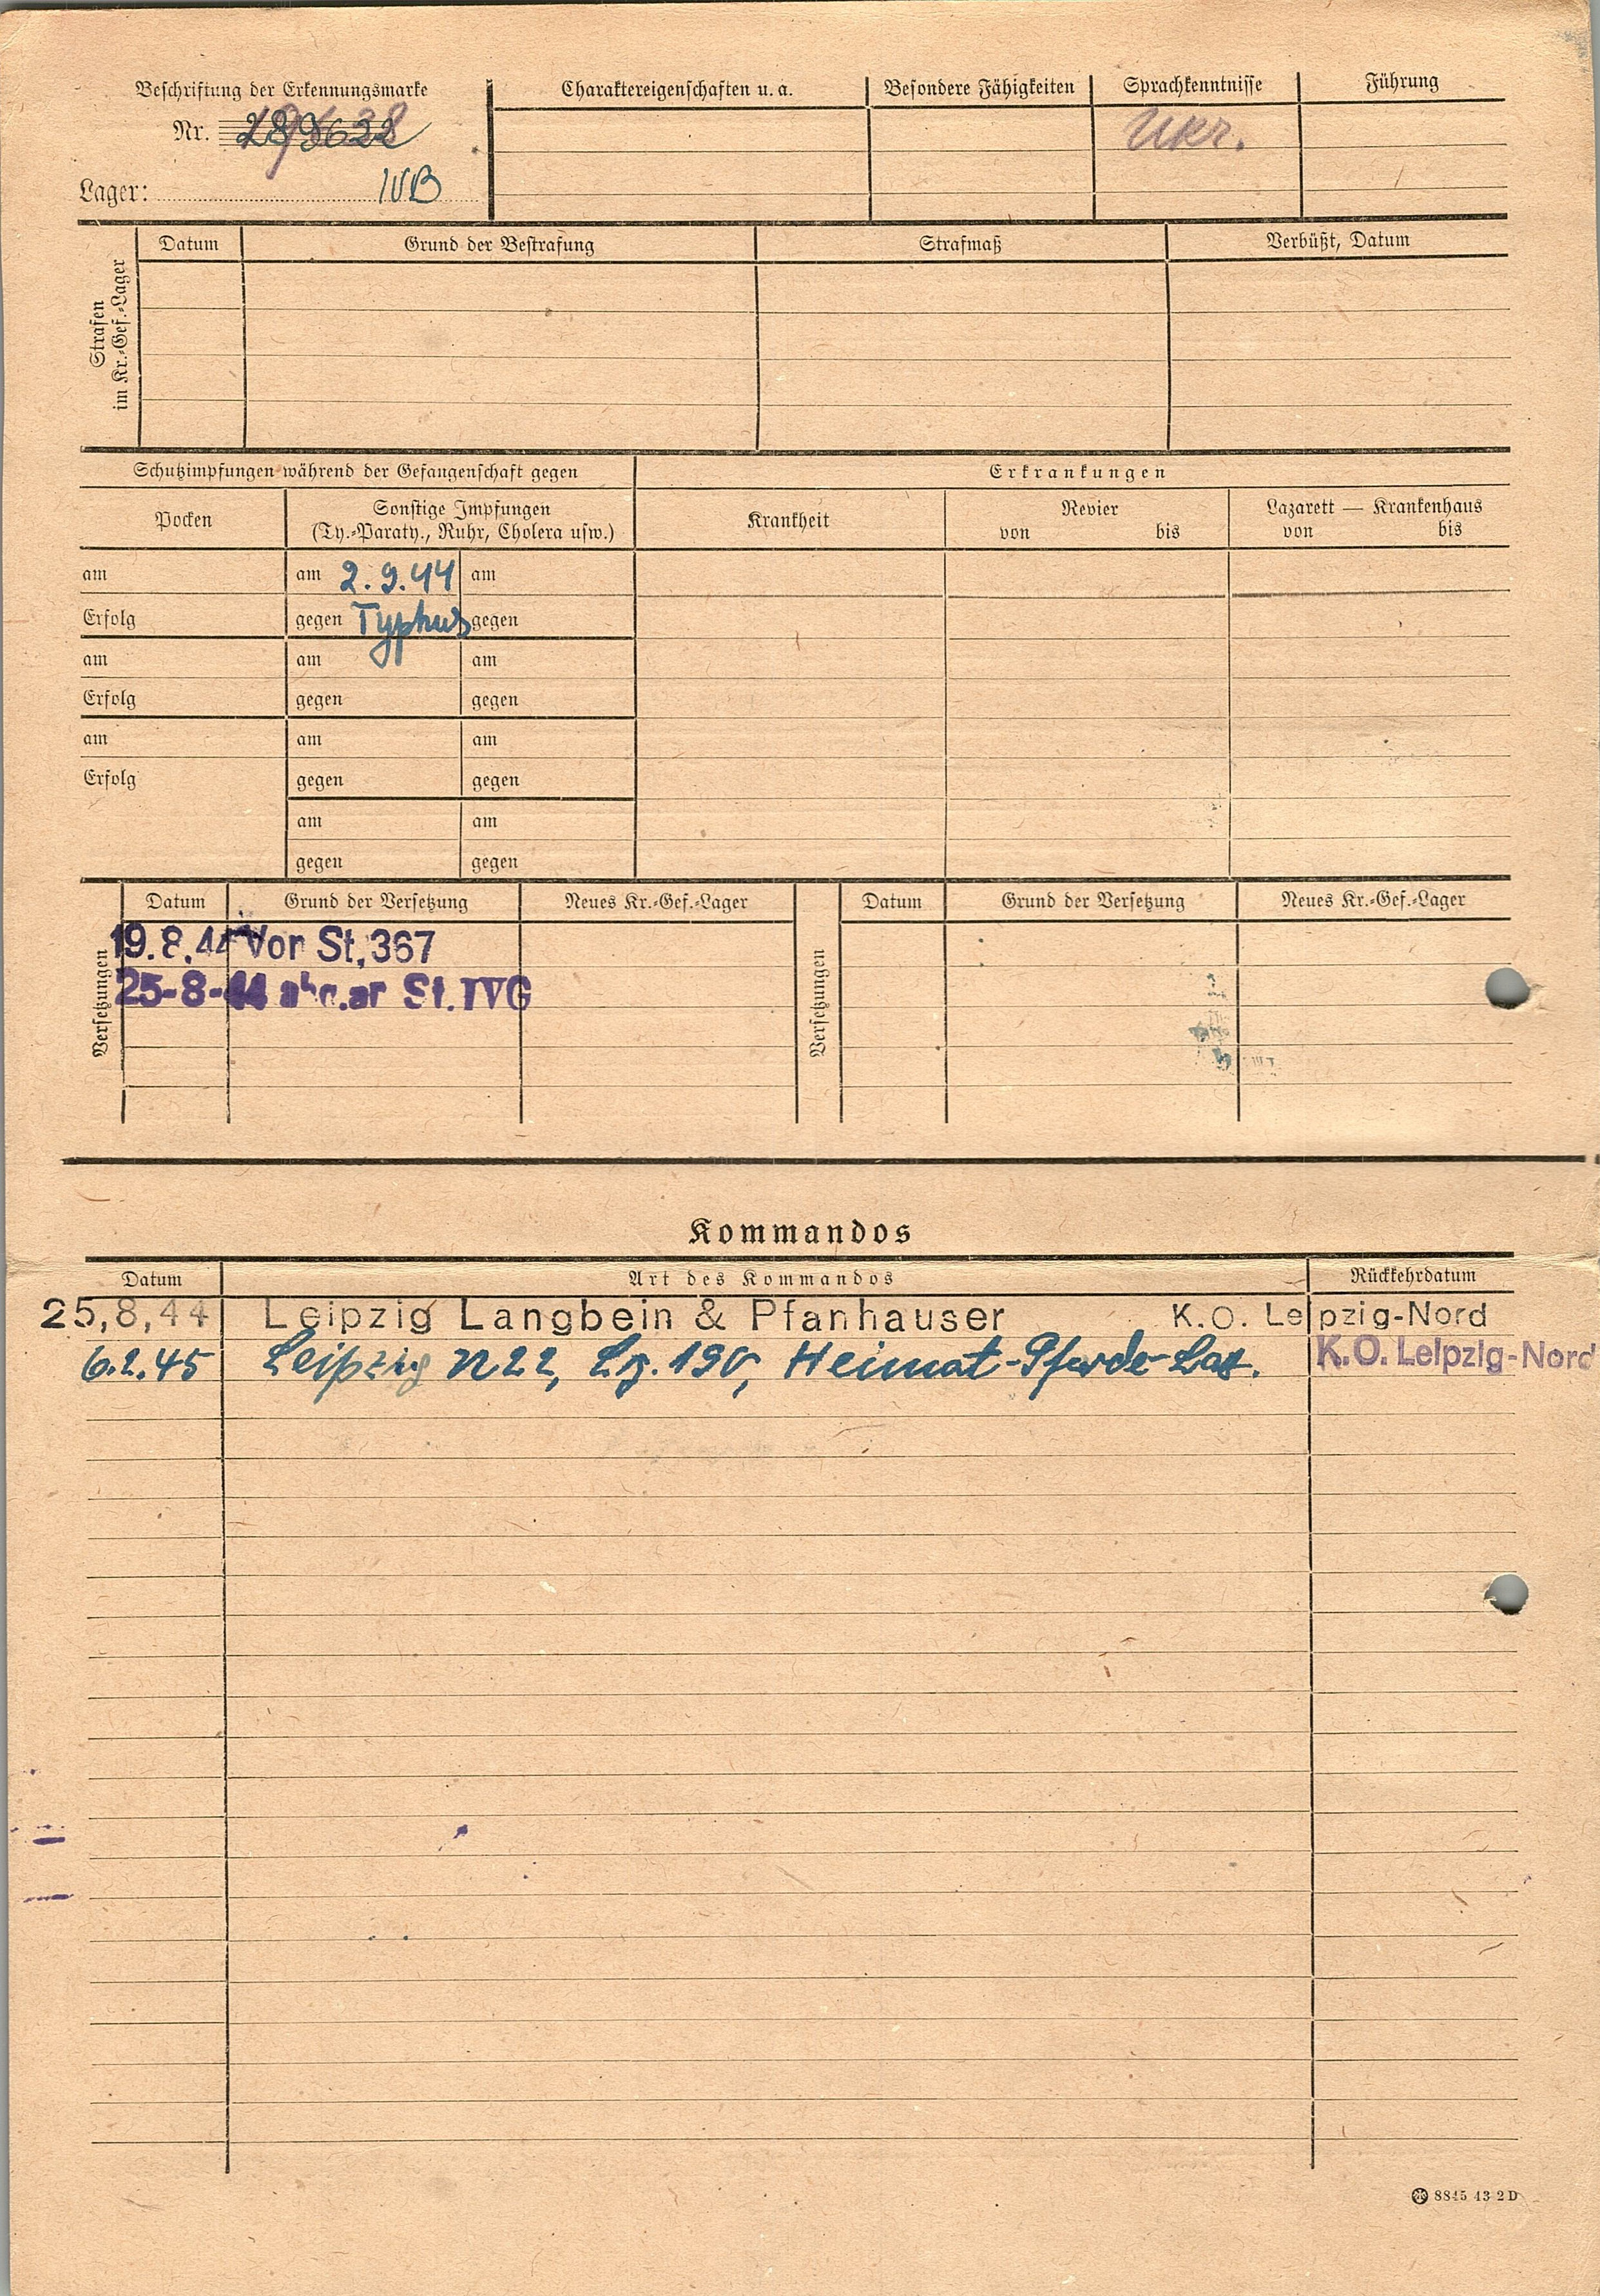 Beschriftung der Erkennungsmarke
Nr.
Lager: IVB
Charaktereigenschaften u. a.
Besondere Fähigkeiten
Sprachkenntnisse
Ukr.
Führung
Strafen
im Kr.-Gef.-Lager
Datum
Grund der Bestrafung
Strafmaß
Verbüßt, Datum
Schutzimpfungen während der Gefangenschaft gegen
Erkrankungen
Pocken
Sonstige Impfungen
(Ty.-Paraty., Ruhr, Cholera usw.)
Krankheit
Revier
von bis
Lazarett — Krankenhaus
von bis
am am 2.9.44 am
Erfolg gegen Typhus gegen
am am am
Erfolg gegen gegen
am am am
Erfolg gegen gegen
am am
gegen gegen
Versetzungen
Datum Grund der Versetzung Neues Kr.-Gef.-Lager
19.8.44 Von St. 367
25-8-44 St. IVG
Versetzungen
Datum Grund der Versetzung Neues Kr.-Gef.-Lager
Kommandos
Datum Art des Kommandos Rückkehrdatum
25,8,44 Leipzig Langbein & Pfanhauser K.O. Leipzig-Nord
6.2.45 Leipzig N22, Lg. 190, Heimat-Pferde-Laz. K.O. Leipzig-Nord
8845 43 2D